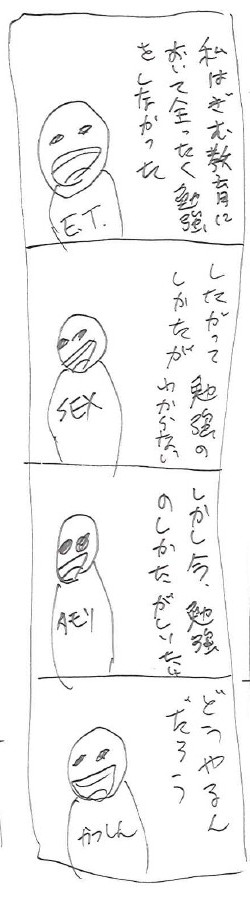 私はぎむ教育に
おいて全ったく勉強
をしなかった
E.T.
したがって勉強の
しかたが
わからない
SEX
しかし今、勉強
のしかたが
Aモリ
どうやるん
だろう
かっしん